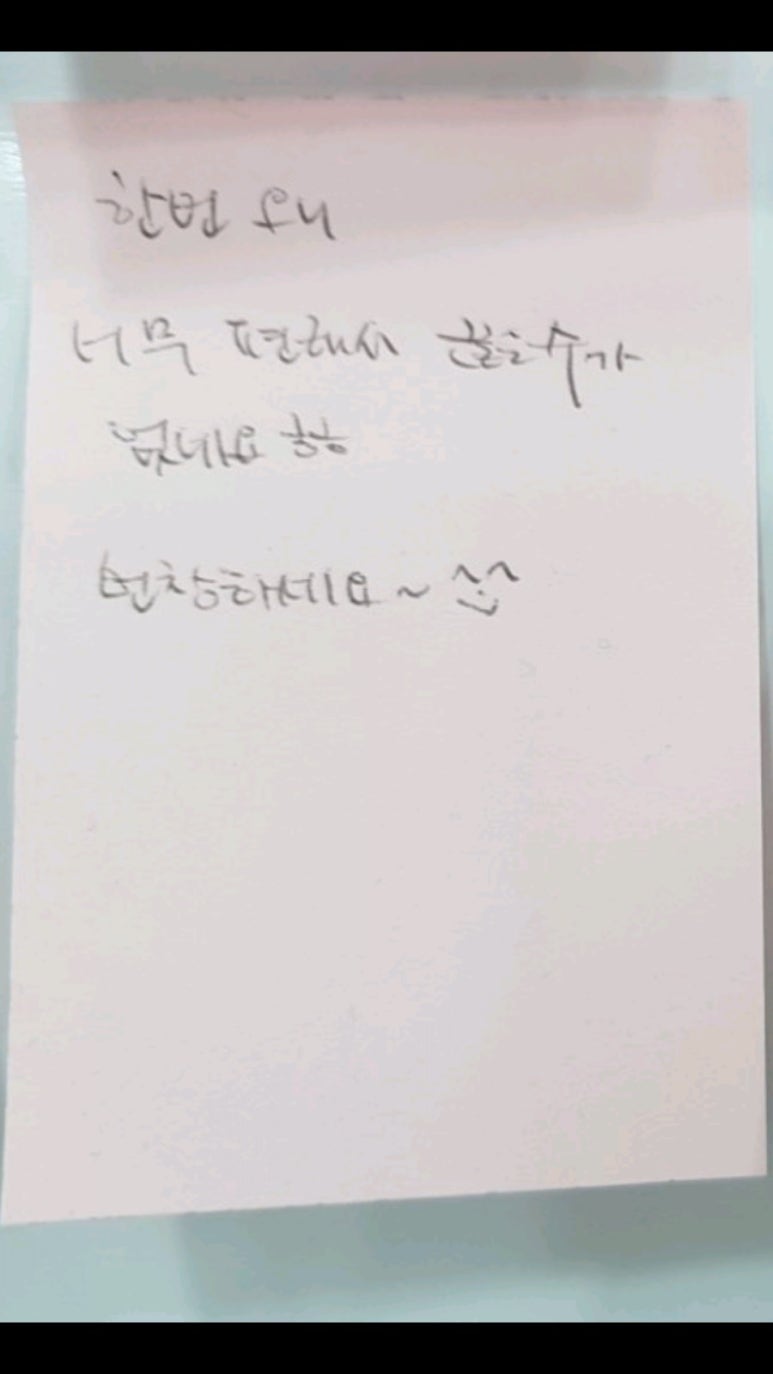 한번 오니
너무 편해서 끊을수가
없네요 ㅎㅎ
번창하세요~ ^^